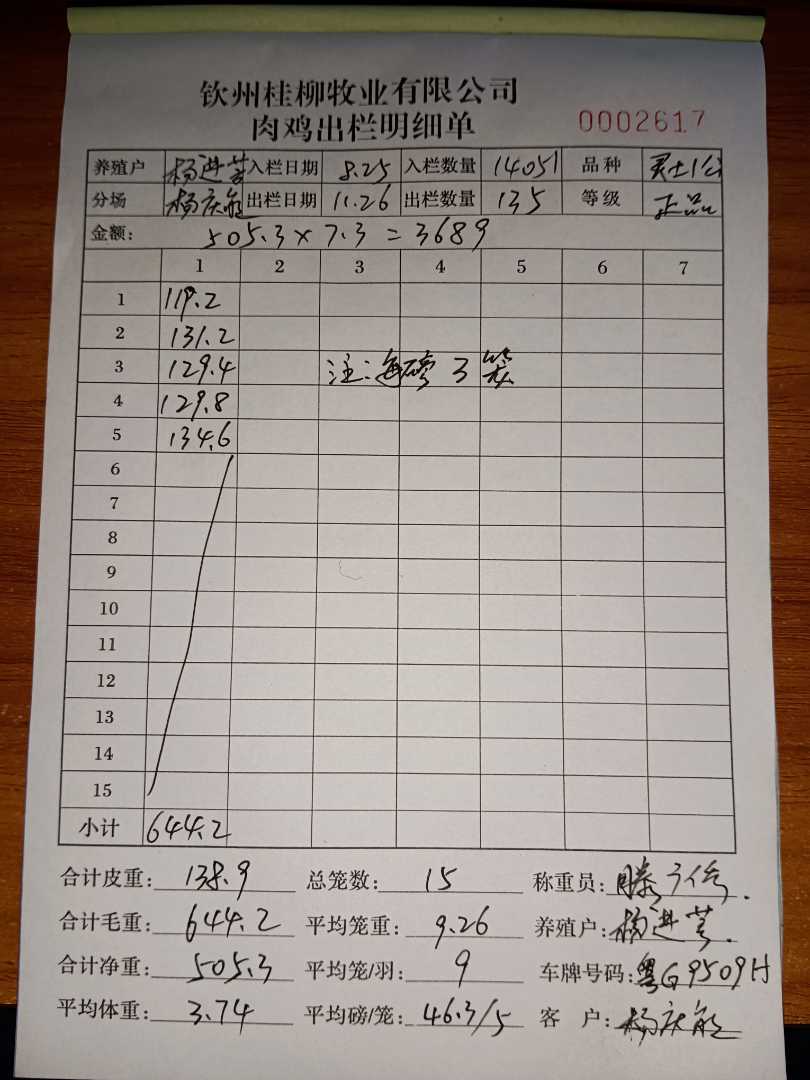 钦州桂柳牧业有限公司
肉鸡出栏明细单 0002617
养殖户 杨进芳 入栏日期 8.25 入栏数量 14051 品种
分场 杨庆能 出栏日期 11.26 出栏数量 135 等级 正品
金额: 505.3×7.3=3689
1 2 3 4 5 6 7
1 119.2
2 131.2
3 129.4 注:每磅3笼
4 129.8
5 134.6
6
7
8
9
10
11
12
13
14
15
小计 644.2
合计皮重: 138.9 总笼数: 15 称重员: 滕
合计毛重: 644.2 平均笼重: 9.26 养殖户: 杨进芳.
合计净重: 505.3 平均笼/羽: 9 车牌号码: 粤G9509H
平均体重: 3.74 平均磅/笼: 46.3/5 客 户: 杨庆能